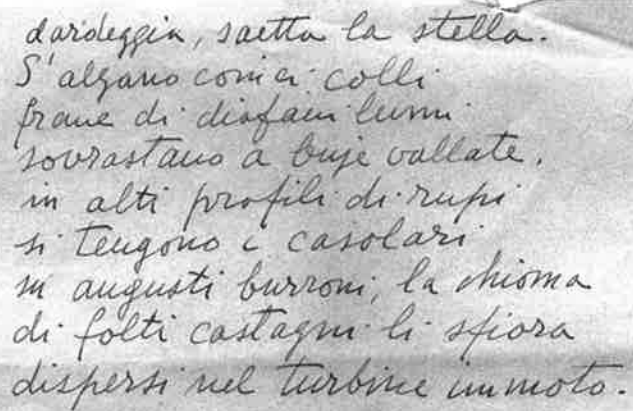 dardeggia, saetta la stella.
S'alzano conici colli
frane di diafani lumi
sovrastano a buje vallate.
in alti profili di rupi
si tengono i casolari
su angusti burroni, la chioma
di folti castagni li sfiora
dispersi nel turbine immoto.